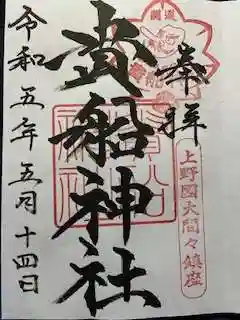 奉拝
上野國大間々鎮座
貴船神社
令和五年五月十四日